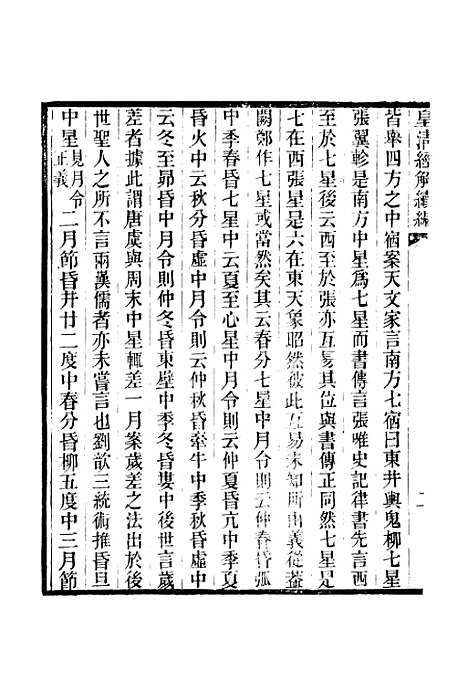 皇淸經解續編
皆舉四方之中宿案天文家言南方七宿曰東井輿鬼柳七星
張翼軫是南方中星爲七星而書傳言張唯史記律書先言西
至於七星後云西至於張亦互易其位與書傳正同然七星是
七在西張星是六在東天象昭然彼此互易未知所由義從蓋
闕鄭作七星或當然矣其云春分七星中月令則云仲春昏弧
中季春昏七星中云夏至心星中月令則云仲夏昏亢中季夏
昏火中云秋分昏虛中月令則云仲秋昏牽牛中季秋昏虛中
云冬至昴昏中月令則仲冬昏東壁中季冬昏婁中後世言歲
差者據此謂唐虞與周末中星輒差一月案歲差之法出於後
世聖人之所不言兩漢儒者亦未嘗言也劉歆三統術推昏旦
中星見月令正義二月節昏井廿二度中春分昏柳五度中三月節